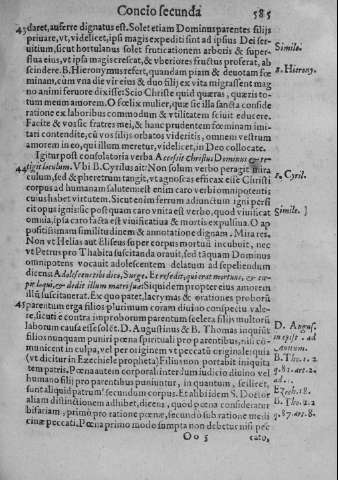 Concio secunda 585
43 daret, auferre dignatus est. Solet etiam Dominus parentes filijs
priuare, vt, videlicet, ipsi magis expediti sint ad ipsius Dei ser-
uitium, sicut hortulanus solet fruticationem arboris & super-
flua eius, vt ipsa magis crescat, & vberiores fructus proferat, ab
scindere. B. Hieronymus refert, quandam piam & deuotam fœ
minam, cum vna die vir eius & duo filij ex vita migrassent mag
no animi feruore dixisse: Scio Christe quid quæras, quæris to-
tum meum amorem. O fœlix mulier, quæ sic illa sancta conside
ratione ex laboribus commodum & vtilitatem sciuit educere.
Facite & vos sic fratres mei, & hanc prudentem fœminam imi-
tari contendite, cū vos filijs orbatos videritis, omnem vestrum
amorem in eo, qui illum meretur, videlicet, in Deo collocate.
Igitur post consolatoria verba Accessit Christus Dominus & te-
44 tigit loculum. Vbi B. Cyrillus ait: Non solum verbo peragit mira
culum, sed & pheretrum tangit, vt cognoscas efficax esse Christi
corpus ad humanam salutem: est enim caro verbi omnipotentis
cuius habet virtutem. Sicut enim ferrum adiunctum igni perfi
cit opus ignis: sic postquam caro vnita est verbo, quod viuificat
omnia, ipsa caro facta est viuificatiua & mortis expulsiua. O ap
positissimam similitudinem & annotatione dignam. Mira res.
Non vt Helias aut Eliseus super corpus mortuū incubuit, nec
vt Petrus pro Thabita suscitanda orauit, sed tāquam Dominus
omnipotens vocauit adolescentem delatum ad sepeliendum
dicens: Adolescens tibi dico, Surge. Et resedit, qui erat mortuus, & cœ-
pit loqui, & dedit illum matri suæ: Siquidem propter eius amorem
illū suscitauerat. Ex quo patet, lacrymas & orationes proborū
45 parentum erga filios plurimum coram diuino conspectu vale-
re, sicuti e contra improborum parentum scelera filijs multorū
laborum causa esse solet. D. Augustinus & B. Thomas inquiūt
filios nunquam puniri pœna spirituali pro parentibus, nisi cō-
municent in culpa, vel per originem vt peccatū originale: quia
(vt dicitur in Ezechiele propheta) Filius non portabit iniquita
tem patris. Pœna autem corporali interdum iudicio diuino vel
humano filij pro parentibus puniuntur, in quantum, scilicet,
sunt aliquid patrum secundum corpus. Et alibi idem S. Doctor
aliam distinctionem adhibet, dicens, quod pœna consideratur
bifariam, primò pro ratione pœnæ, secundò sub ratione medi
cinæ peccati. Pœna primo modo sumpta non debetur nisi pec-
Oo 5 cato,
Simile.
s. Hierony.
s. Cyril.
Simile.
D. Augus.
in epist. ad
B. Tho. 1. 2.
q. 81. art. 2.
ad.
Ezech. 18.
B. Tho. 2. 2
q. 87. art. 8.